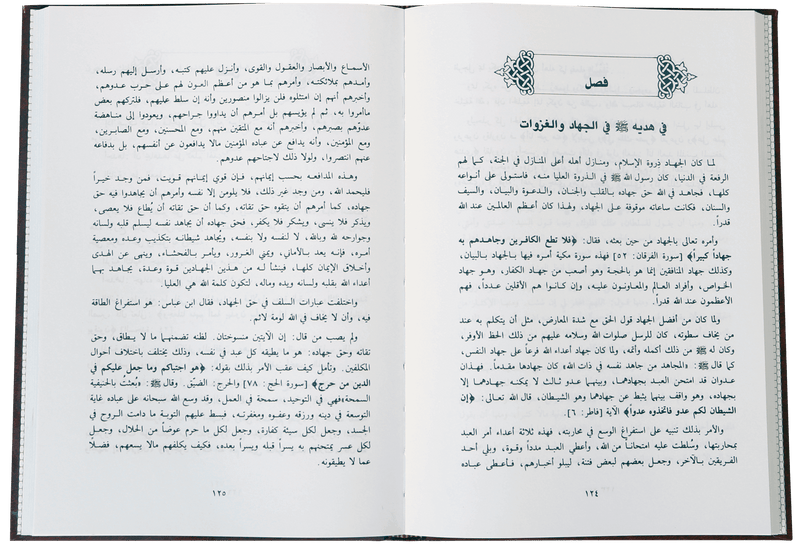 فصل
في هديه ﷺ في الجهاد والغزوات
لما كان الجهاد ذروة الإسلام، ومنازل أهله أعلى المنازل في الجنة، كما لهم
الرفعة في الدنيا، كان رسول الله ﷺ في الذروة العليا منه، فاستولى على أنواعه
كلها، فجاهد في الله حق جهاده بالقلب والجنان، والدعوة والبيان، والسيف
والسنان، فكانت ساعاته موقوفة على الجهاد، ولهذا كان أعظم العالمين عند الله
قدراً.
وأمره تعالى بالجهاد من حين بعثه، فقال: ﴿فلا تطع الكافرين وجاهدهم به
جهاداً كبيراً﴾ [سورة الفرقان: ٥٢] فهذه سورة مكية أمره فيها بالجهاد بالبيان،
وكذلك جهاد المنافقين إنما هو بالحجة وهو أصعب من جهاد الكفار، وهو جهاد
الخواص، وأفراد العالم والمعاونون عليه، وإن كانوا هم الأقلين عدداً، فهم
الأعظمون عند الله قدراً.
ولما كان من أفضل الجهاد قول الحق مع شدة المعارض، مثل أن يتكلم به عند
من يخاف سطوته، كان للرسل صلوات الله وسلامه عليهم من ذلك الحظ الأوفر،
وكان له ﷺ من ذلك أكمله وأتمه، ولما كان جهاد أعداء الله فرعاً على جهاد النفس،
كما قال ﷺ: «المجاهد من جاهد نفسه في ذات الله» كان جهادها مقدماً. فهذان
عدوان قد امتحن العبد بجهادهما، وبينهما عدو ثالث لا يمكنه جهادهما إلا
بجهاده، وهو واقف بينهما يثبط عن جهادهما وهو الشيطان، قال الله تعالى: ﴿إن
الشيطان لكم عدو فاتخذوه عدواً﴾ الآية [فاطر: ٦].
والأمر بذلك تنبيه على استفراغ الوسع في محاربته، فهذه ثلاثة أعداء أمر العبد
بمحاربتها، وسُلطت عليه امتحاناً من الله، وأعطي العبد مدداً وقوة، وبلي أحد
الفريقين بالآخر، وجعل بعضهم لبعض فتنة، ليبلو أخبارهم، فأعطى عباده
١٢٤
الأسماع والأبصار والعقول والقوى، وأنزل عليهم كتبه، وأرسل إليهم رسله،
وأمدهم بملائكته، وأمرهم بما هو من أعظم العون لهم على حرب عدوهم،
وأخبرهم أنهم إن امتثلوه فلن يزالوا منصورين وأنه إن سلط عليهم، فلتركهم بعض
ماأمروا به، ثم لم يؤيسهم بل أمرهم أن يداووا جراحهم، ويعودوا إلى مناهضة
عدوّهم بصبرهم، وأخبرهم أنه مع المتقين منهم، ومع المحسنين، ومع الصابرين،
ومع المؤمنين، وأنه يدافع عن عباده المؤمنين مالا يدافعون عن أنفسهم، بل بدفاعه
عنهم انتصروا، ولولا ذلك لاجتاحهم عدوهم.
وهذه المدافعة بحسب إيمانهم، فإن قوي إيمانهم قويت، فمن وجد خيراً
فليحمد الله، ومن وجد غير ذلك، فلا يلومن إلا نفسه وأمرهم أن يجاهدوا فيه حق
جهاده، كما أمرهم أن يتقوه حق تقاته، وكما أن حق تقاته أن يُطاع فلا يعصى،
ويذكر فلا ينسى، ويشكر فلا يكفر، فحق جهاده أن يجاهد نفسه ليسلم قلبه ولسانه
وجوارحه لله وبالله، لا لنفسه ولا بنفسه، ويجاهد شيطانه بتكذيب وعده ومعصية
أمره، فإنه يعد بالأماني، ويمني الغرور، ويأمر بالفحشاء، وينهى عن الهدى
وأخلاق الإيمان كلها، فينشأ لـه من هذين الجهادين قوة وعدة، يجاهد بهما
أعداء الله بقلبه ولسانه ويده وماله، لتكون كلمة الله هي العليا.
واختلفت عبارات السلف في حق الجهاد، فقال ابن عباس: هو استفراغ الطاقة
فيه، وأن لا يخاف في الله لومة لائم.
ولم يصب من قال: إن الآيتين منسوختان. لظنه تضمنهما ما لا يطاق، وحق
تقاته وحق جهاده: هو ما يطيقه كل عبد في نفسه، وذلك يختلف باختلاف أحوال
المكلفين. وتأمل كيف عقب الأمر بذلك بقوله: ﴿هو اجتباكم وما جعل عليكم في
الدين من حرج﴾ [سورة الحج: ٧٨] والحرج: الضيّق. وقال ﷺ: «بُعثتُ بالحنيفية
السمحة»فهي في التوحيد، سمحة في العمل، وقد وسع الله سبحانه على عباده غاية
التوسعة في دينه ورزقه وعفوه ومغفرته، فبسط عليهم التوبة ما دامت الروح في
الجسد، وجعل لكل سيئة كفارة، وجعل لكل ما حرم عوضاً من الحلال، وجعل
لكل عسر يمتحنهم به يسراً قبله ويسراً بعده، فكيف يكلفهم مالا يسعهم، فضلاً
عما لا يطيقونه.
١٢٥